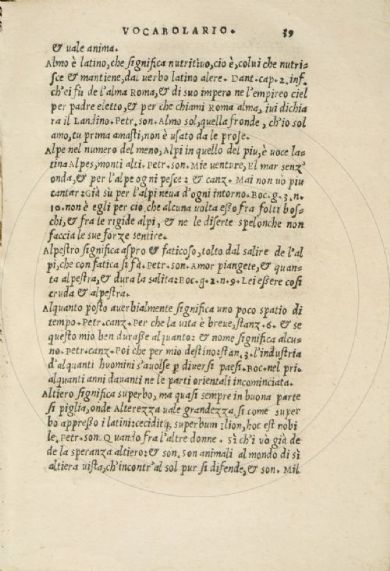 VOCABOLARIO. 39
& vale anima.
Almo è latino, che significa nutritivo, cio è, colui che nutri-
sce & mantiene, dal verbo latino alere. Dant. cap. 2. inf.
ch'ei fu de l'alma Roma, & di suo impero ne l'empireo ciel
per padre eletto, & per che chiami Roma alma, ivi dichia
ra il Landino. Petr. son. Almo sol, quella fronde, ch'io sol
amo, tu prima amasti, non è usato da le prose.
Alpe nel numero del meno, Alpi in quello del piu, è voce la=
tina Alpes, monti alti. Petr. son. Mie venture, El mar senz'
onda, & per l'alpe ogni pesce: & canz. Mai non vò piu
cantar: Già su per l'alpi neva d'ogni intorno. Boc. g. 3. n.
10. non è egli per cio, che alcuna volta esso fra folti bos-
chi, & fra le rigide alpi, & ne le diserte spelonche non
faccia le sue forze sentire.
Alpestro significa aspro & faticoso, tolto dal salire de l'al
pi, che con fatica si fà. Petr. son. Amor piangete, & quan-
ta alpestra, & dura la salita: Boc. g. 2. n. 9. Lei essere cosi
cruda & alpestra.
Alquanto posto averbialmente significa uno poco spatio di
tempo. Petr. canz. Per che la vita è breve, stanz. 6. & se
questo mio ben durasse alquanto: & nome significa alcu-
no. Petr. canz. Poi che per mio destino: stan. 3. l'industria
d'alquanti huomini s'avolse per diversi paesi. Boc. nel pri.
alquanti anni davanti ne le parti orientali incominciata.
Altiero significa superbo, ma quasi sempre in buona parte
si piglia, onde Alterezza vale grandezza, si come super
bo appresso i latini: ceciditq; superbum: Ilion, hoc est nobi
le, Petr. son. Quando fra l'altre donne. Sì ch'i vò già de
de la speranza altiero: & son. Son animali al mondo di sì
altiera vista, ch'incontr'al sol pur si difende, & son. Mil